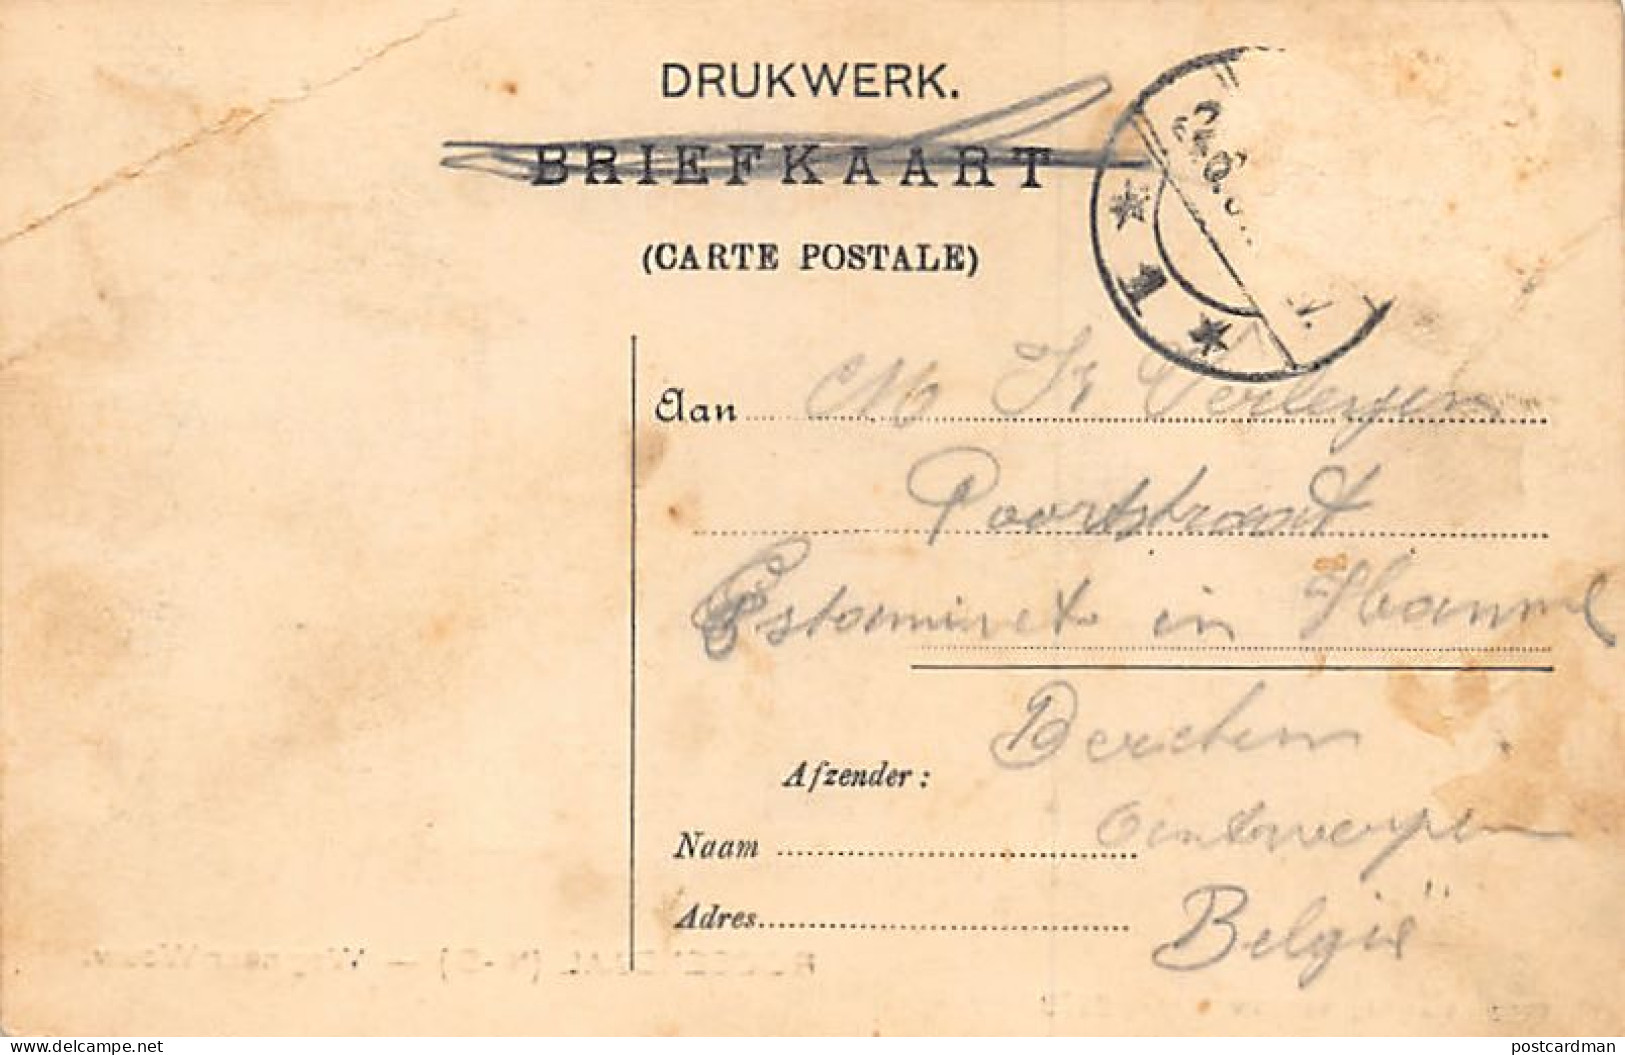 DRUKWERK.
BRIEFKAART
(CARTE POSTALE)
* 1 *
Aan M Verleyen
Poortstraat
Estaminet in
Berchem
Afzender:
antwerpen
Naam
België
Adres
www.delcampe.net
postcardman